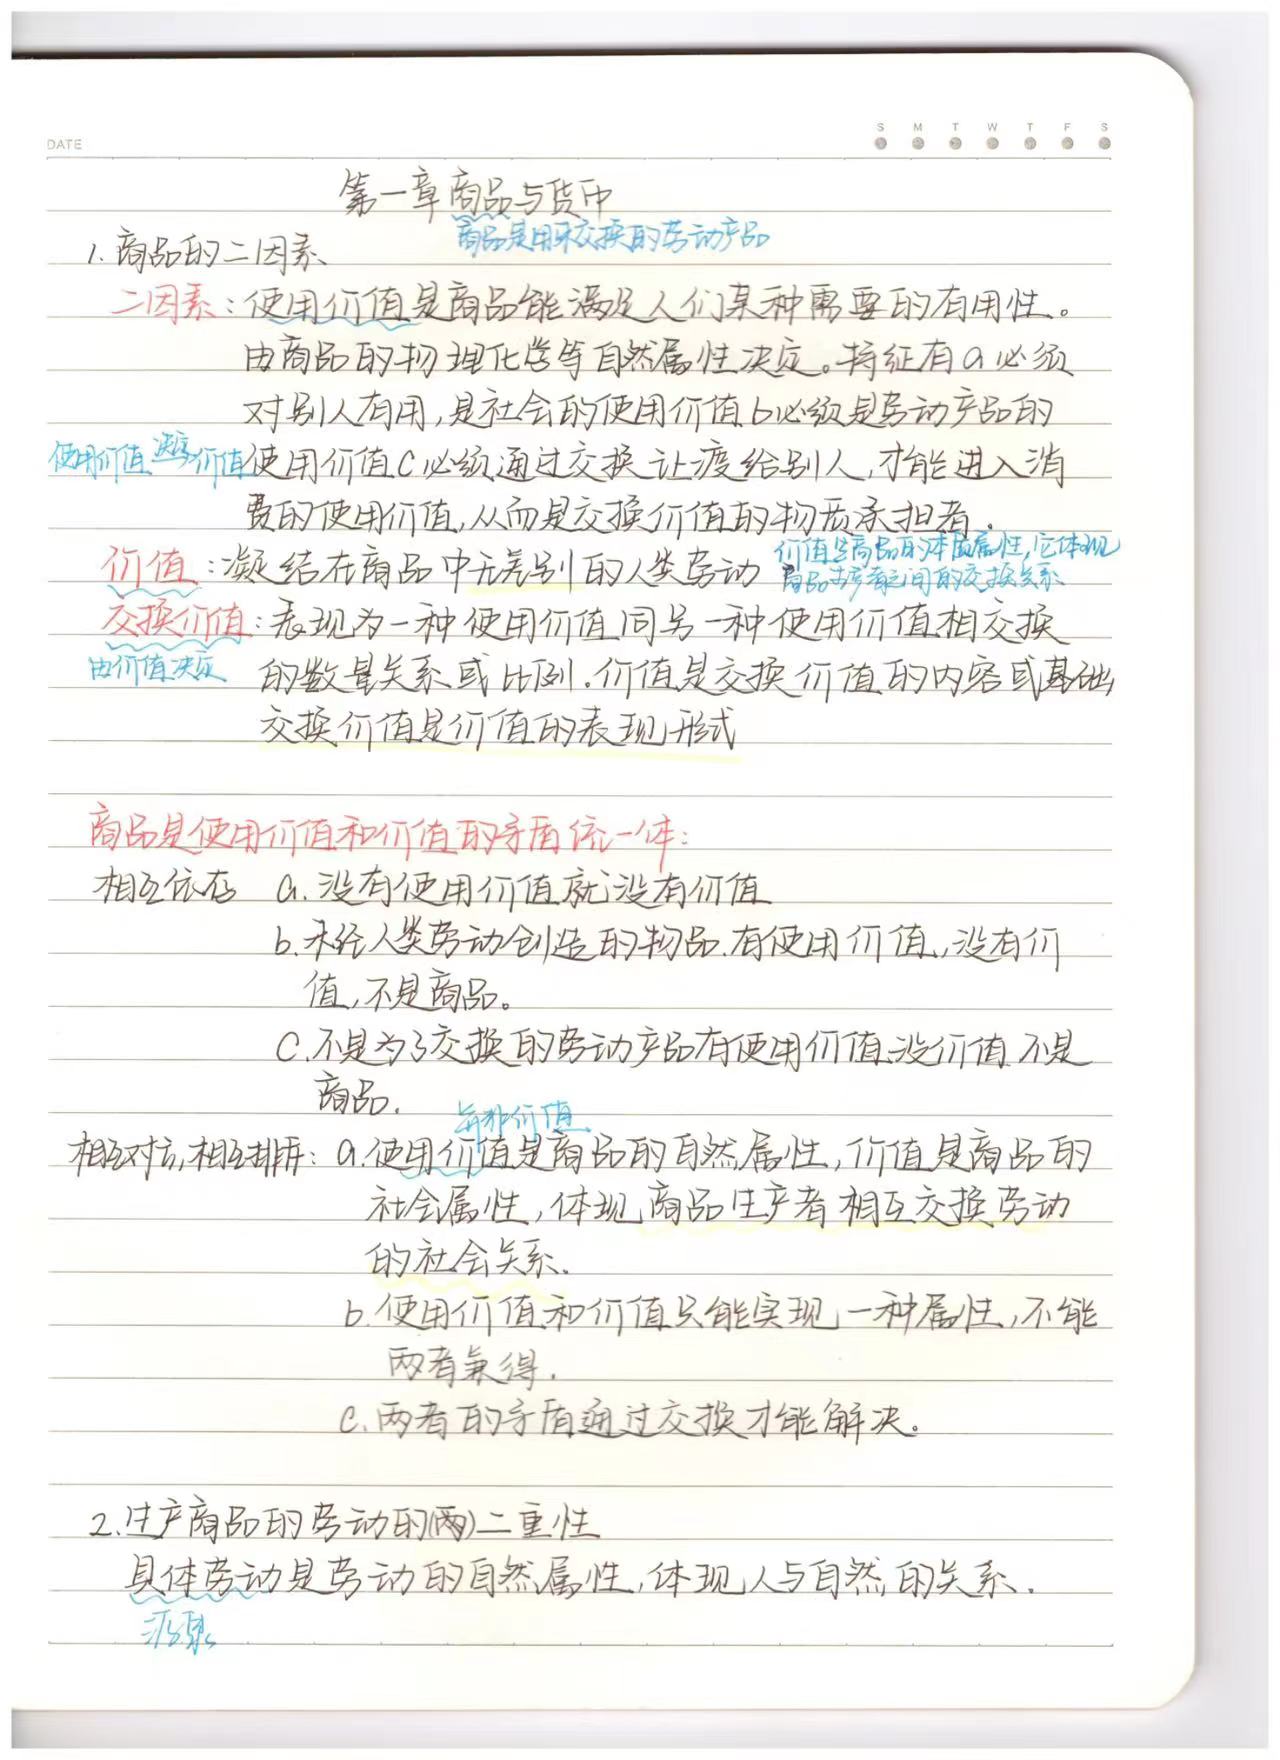 DATE
S M T W T F S
第一章商品与货币
商品是用来交换的劳动产品
1.商品的二因素
二因素:使用价值是商品能满足人们某种需要的有用性。
由商品的物理化学等自然属性决定。特征有a必须
对别人有用,是社会的使用价值b必须是劳动产品的
使用价值 决定 价值
使用价值C必须通过交换让渡给别人,才能进入消
费的使用价值,从而是交换价值的物质承担者.
价值:凝结在商品中无差别的人类劳动
价值是商品的本质属性,它体现
商品生产者之间的交换关系
交换价值:表现为一种使用价值同另一种使用价值相交换
由价值决定
的数量关系或比例.价值是交换价值的内容或基础,
交换价值是价值的表现形式
商品是使用价值和价值的矛盾统一体:
相互依存 a.没有使用价值就没有价值
b.未经人类劳动创造的物品.有使用价值,没有价
值,不是商品。
C.不是为了交换的劳动产品有使用价值没价值不是
商品.
并非价值
相互对立,相互排斥: a.使用价值是商品的自然属性,价值是商品的
社会属性,体现商品生产者相互交换劳动
的社会关系.
b.使用价值和价值只能实现一种属性,不能
两者兼得.
C.两者的矛盾通过交换才能解决。
2.生产商品的劳动的(两)二重性
具体劳动是劳动的自然属性,体现人与自然的关系.